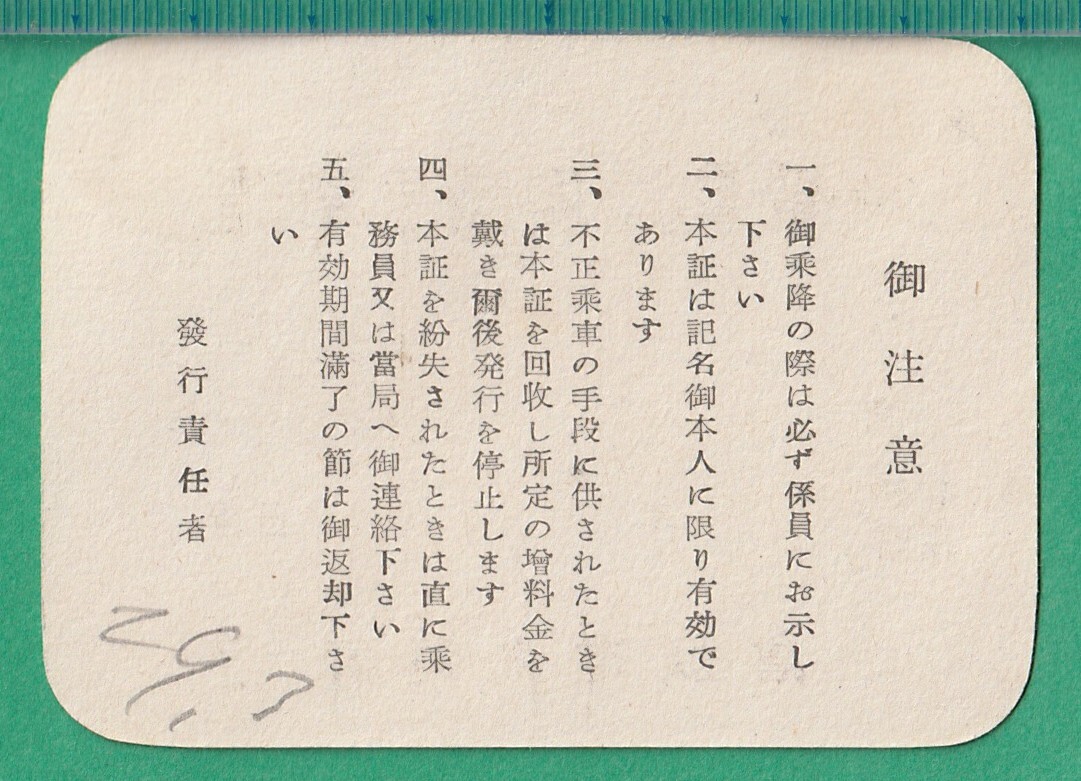 御注意
一、御乗降の際は必ず係員にお示し
下さい
二、本証は記名御本人に限り有効で
あります
三、不正乗車の手段に供されたとき
は本証を回收し所定の增料金を
戴き爾後発行を停止します
四、本証を紛失されたときは直に乗
務員又は當局へ御連絡下さい
五、有効期間滿了の節は御返却下さ
い
發行責任者